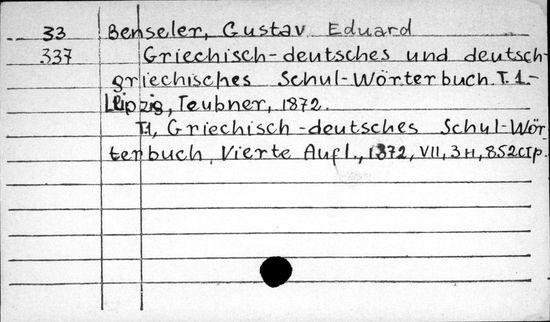 33 Benseler, Gustav Eduard
337 Griechisch-deutsches und deutsch-
griechisches Schul-Wörterbuch. T. 1.-
Leipzig, Teubner, 1872.
T1, Griechisch-deutsches Schul-Wör-
terbuch, Vierte Aufl., 1872, VII, 3н, 852стр.